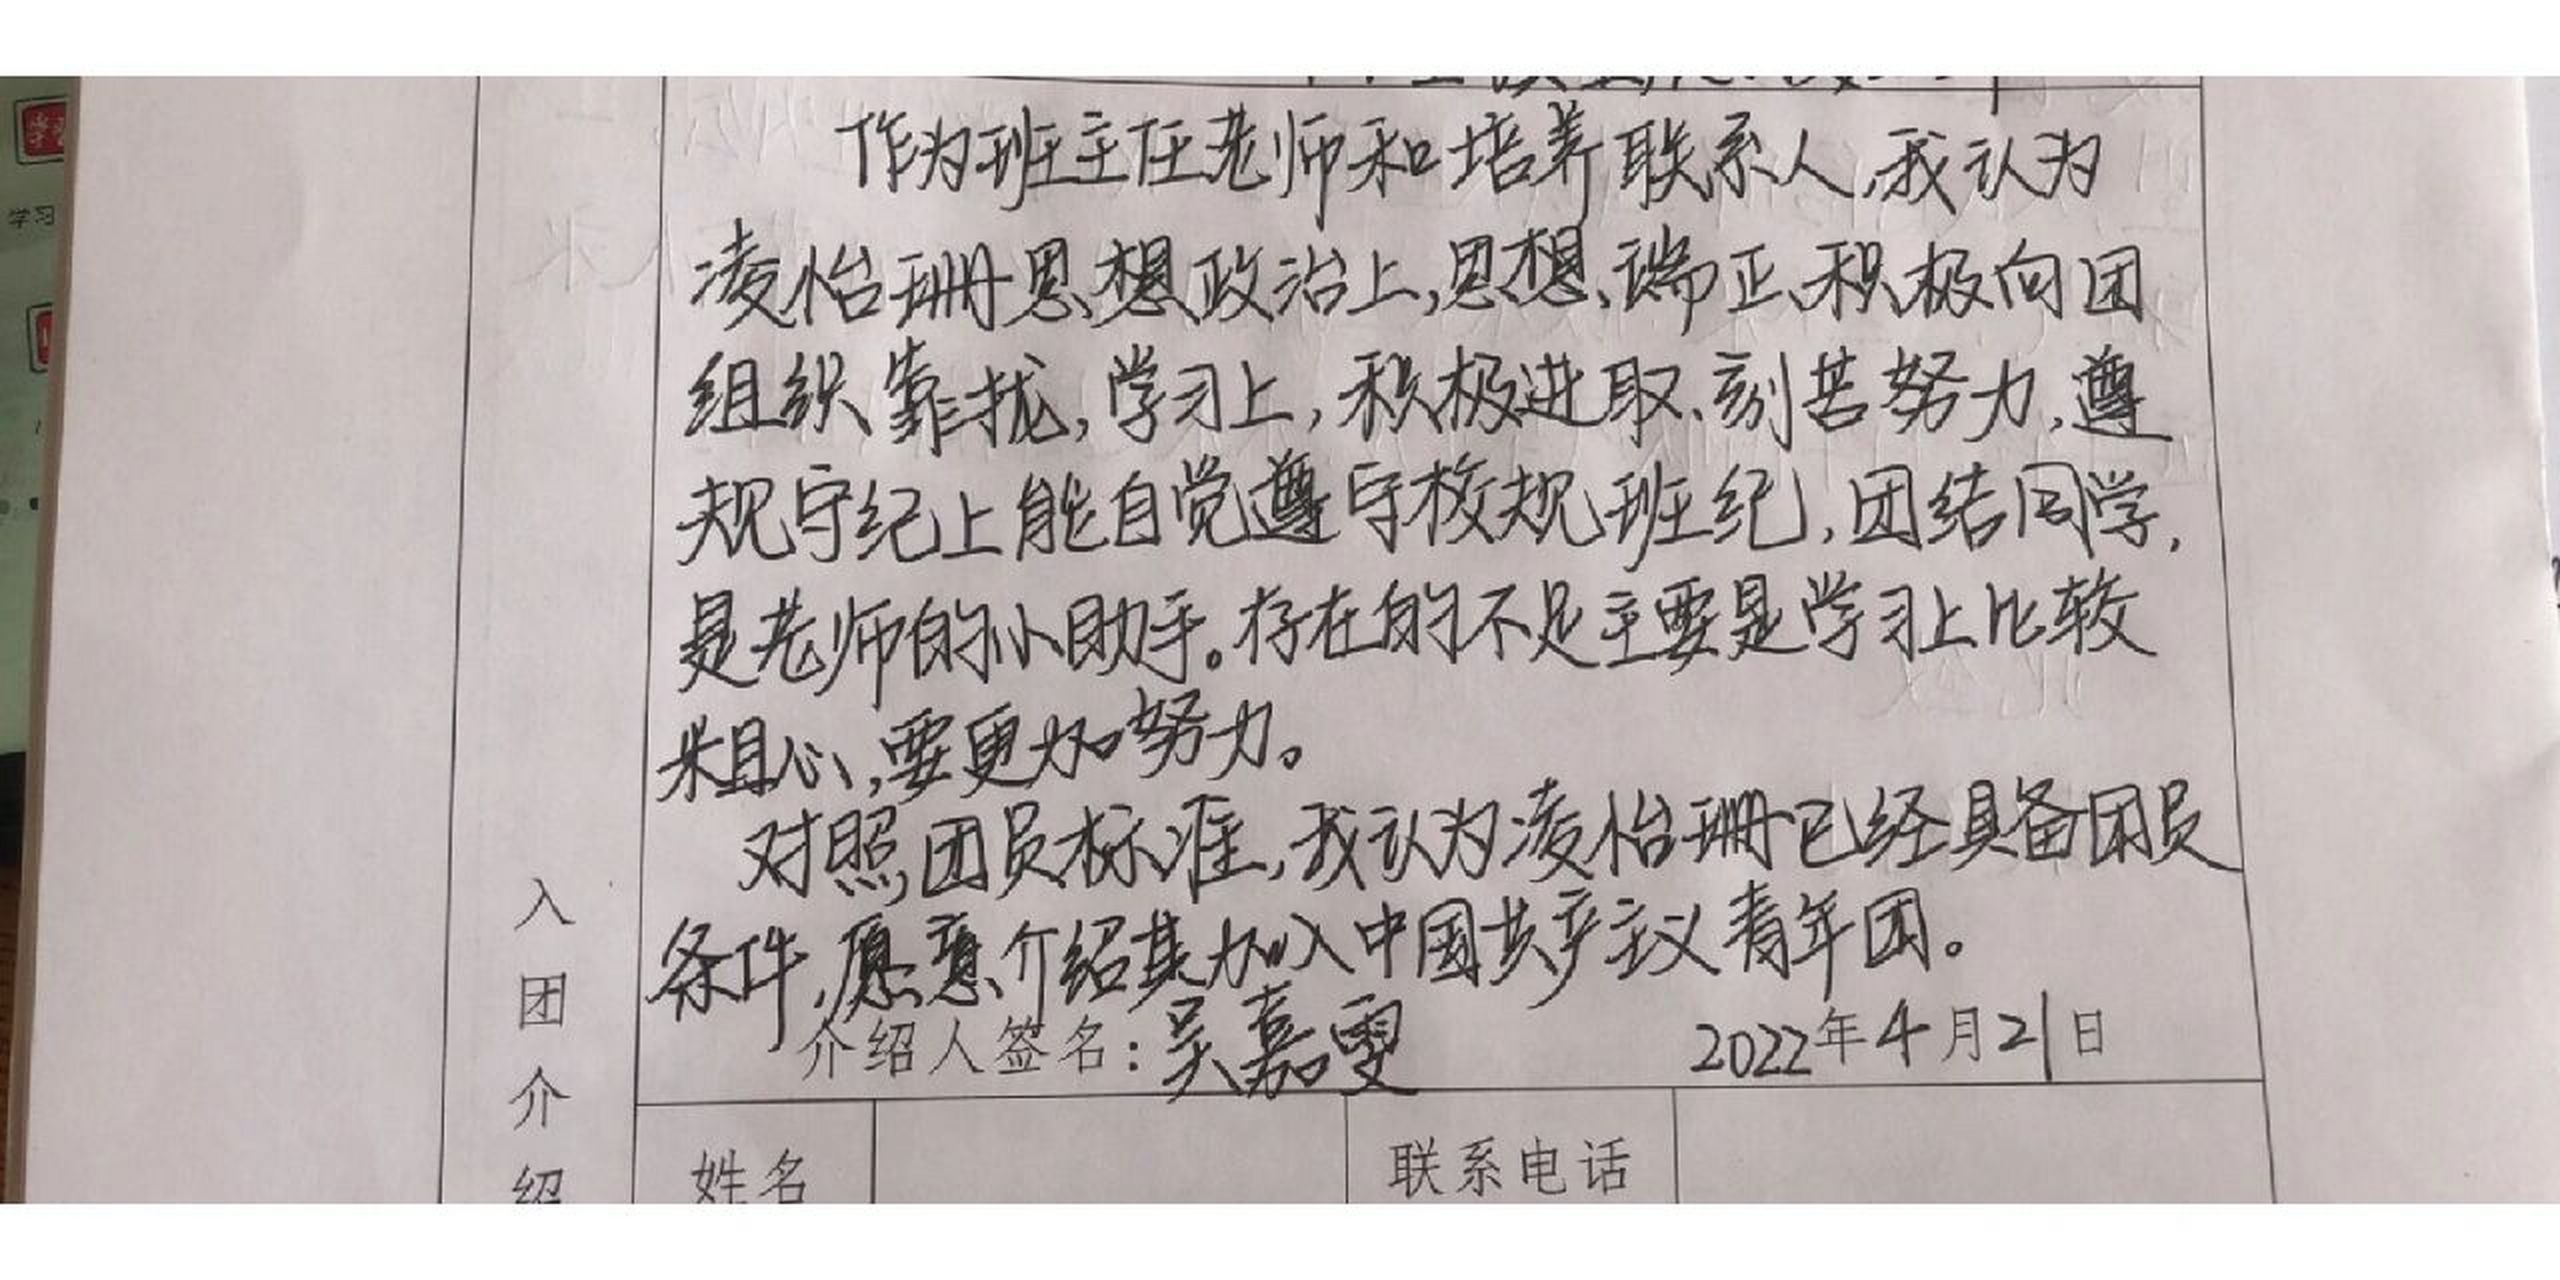 作为班主任老师和培养联系人,我认为
凌怡珊思想政治上,思想、端正、积极向团
组织靠拢,学习上,积极进取、刻苦努力,遵
规守纪上能自觉遵守校规班纪,团结同学,
是老师的小助手。存在的不足主要是学习上比较
粗心,要更加努力。
对照团员标准,我认为凌怡珊已经具备团员
条件,愿意介绍其加入中国共产主义青年团。
介绍人签名:吴嘉雯 2022年4月21日
入
团
介
绍
姓名 联系电话
学习